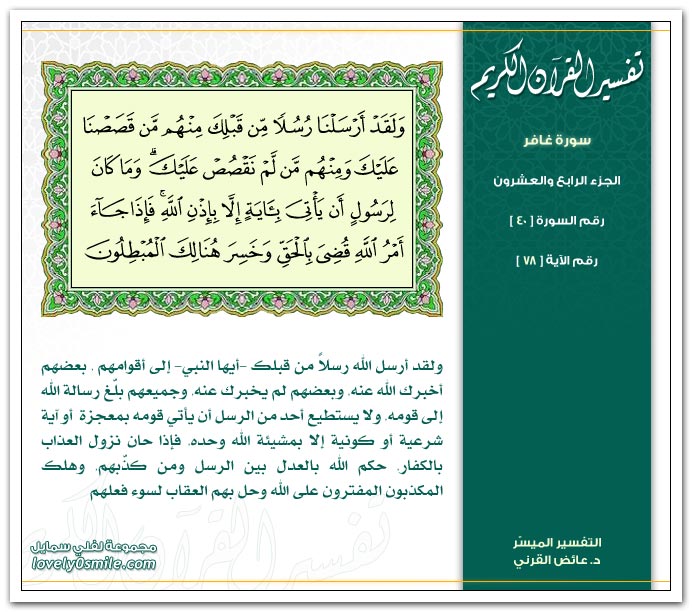 تفسير القرآن الكريم
سورة غافر
الجزء الرابع والعشرون
رقم السورة [ ٤٠ ]
رقم الآية [ ٧٨ ]
وَلَقَدْ أَرْسَلْنَا رُسُلًا مِّن قَبْلِكَ مِنْهُم مَّن قَصَصْنَا
عَلَيْكَ وَمِنْهُم مَّن لَّمْ نَقْصُصْ عَلَيْكَ ۗ وَمَا كَانَ
لِرَسُولٍ أَن يَأْتِىَ بِـَٔايَةٍ إِلَّا بِإِذْنِ ٱللَّهِ ۚ فَإِذَا جَآءَ
أَمْرُ ٱللَّهِ قُضِىَ بِٱلْحَقِّ وَخَسِرَ هُنَالِكَ ٱلْمُبْطِلُونَ
ولقد أرسل الله رسلاً من قبلك -أيها النبي- إلى أقوامهم ، بعضهم
أخبرك الله عنه، وبعضهم لم يخبرك عنه، وجميعهم بلّغ رسالة الله
إلى قومه، ولا يستطيع أحد من الرسل أن يأتي قومه بمعجزة أو آية
شرعية أو كونية إلا بمشيئة الله وحده، فإذا حان نزول العذاب
بالكفار، حكم الله بالعدل بين الرسل ومن كذّبهم، وهلك
المكذبون المفترون على الله وحل بهم العقاب لسوء فعلهم
التفسير الميسّر
د. عائض القرني
مجموعة لفلي سمايل
lovely0smile.com
تفسير القرآن الكريم